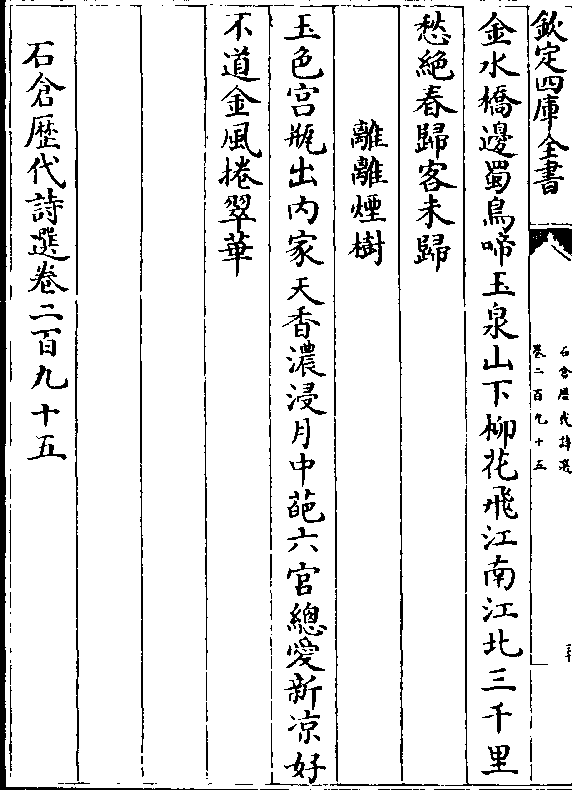 欽定四庫全書
石倉歷代詩選
卷二百九十五
金水橋邊蜀鳥啼玉泉山下柳花飛江南江北三千里
愁絕春歸客未歸
離離煙樹
玉色宮瓶出內家天香濃浸月中葩六宮總愛新涼好
不道金風捲翠華
石倉歷代詩選卷二百九十五